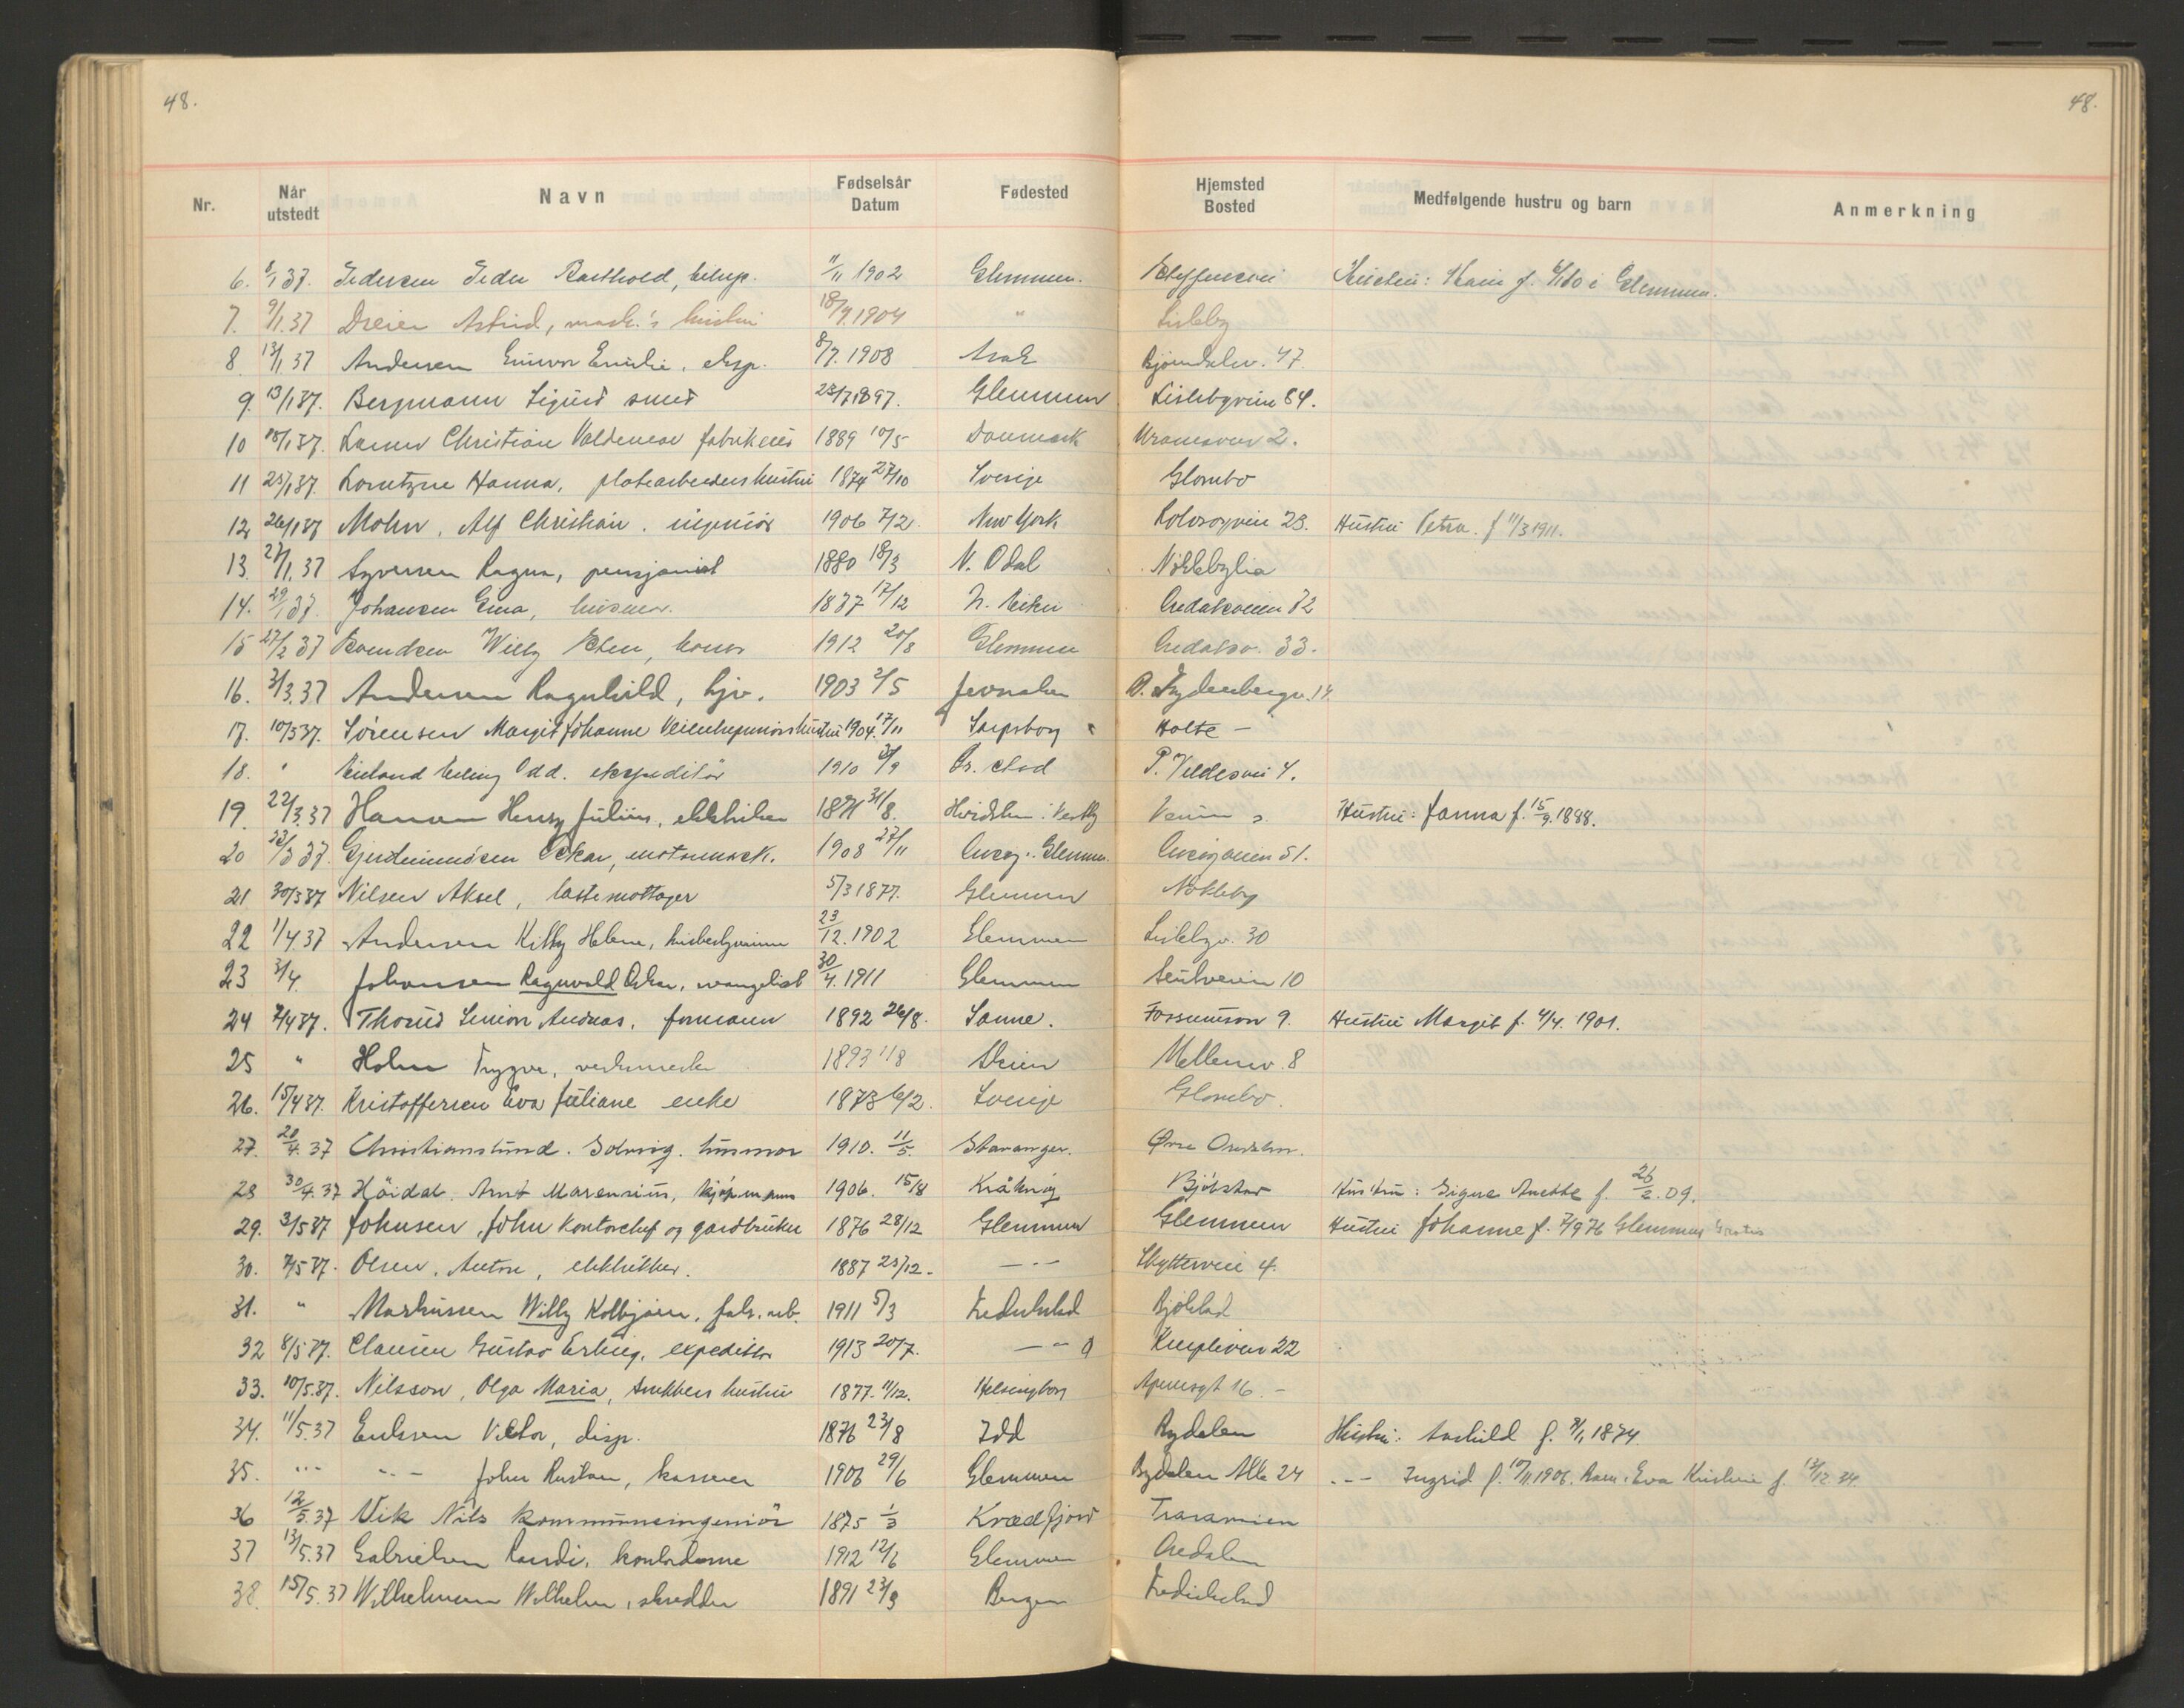 48.
48.
Nr. Når utstedt Navn Fødselsår Datum Fødested Hjemsted Bosted Medfølgende hustru og barn Anmerkning
6. 8/1 37. Pedersen Peder Barthold, 11/11 1902 Glemmen. Hustru: f. i Glemmen.
7. 9/1.37 Dreier Astrid, mask.'s hustru 18/9.1904 " Lisleby
8. 13/1 37 Andersen Gunvor Emilie, eksp. 8/7. 1908 Asak Bjørndalsv. 47.
9. 13/1 37. Bergmann Sigurd smed 23/7 1897. Glemmen Lislebyveien 84.
10 18/1 37. Christian Valdemar 1889 10/5 Danmark 2.
11 25/1 37. Lorentzen Hanna, platearbeiders hustru 1874 27/10 Sverige Glombo
12 26/1 37 Mohn, Alf Christian. ingeniør 1906 7/2. New York Rolvsøyveien 23. Hustru Petra. f 11/3 1911.
13. 27/1.37 Syversen Ragna, pensjonist 1880 18/3 N. Odal Nøklebylia
14. 29/1 37. Johansen Gina, husmor. 1877 17/12 N. Eiker 32
15 27/2 37 Svendsen Willy 1912 20/8 Glemmen 33.
16. 3/3.37 Andersen Ragnhild, hjv. 1903 2/5 Jevnaker 14
17. 10/3 37. Sørensen Margit Johanne hustru 1904. 17/11 Sarpsborg Holte –
18. " Erling Odd. ekspeditør 1910 Fr. stad 4.
19. 22/3.37 Hansen Henry Julius, elektriker 1871 31/8. i Vestby Hustru: Janna f. 15/9.1888.
20 23/3 37. Gjerdmundsen Oskar, 1908 27/11 Glemmen. 51.
21 30/3 37 Nilsen Aksel, lastemottager 5/3 1877. Glemmen Nøkleby
22 1/4.37 Andersen Kitty Helene, husbestyrerinne 23/12.1902 Glemmen Lislebyv. 30
23 3/4. Johansen Ragnvald Oskar, evangelist 30/4.1911 Glemmen 10
24 7/4 37. Simon Andreas, formann 1892 26/8. Sanne. 9. Hustru Margit f. 4/4. 1901.
25 " Holm Trygve, verksmester 1893 1/8 Skien Mellemv. 8
26. 15/4 37. Kristoffersen Eva Juliane enke 1873 6/2. Sverige Glombo.
27. 28/4.37 Christianslund. Solveig. husmor 1910. 11/5. Stavanger. Øvre
28 30/4.37 Høidal. Arnt Marensius, kjøpmann 1906. 15/8 Kråkrøy Bjølstad Hustru: Signe Anette f. 26/2.09.
29. 3/5 37 Johnsen, John Kontorchef og gardbruker 1876 28/12 Glemmen Glemmen Hustru Johanne f. 7/9 76 Glemmen
30. 7/5 37. Olsen, Anton, elektriker. 1887 23/12. — " — Skytterveien 4.
31. " Markussen Willy Kolbjørn, fabr. arb. 1911 5/3 Fredrikstad Bjølstad
32 8/5 37. Clausen Gustav Erling, expeditør 1913 20/7. — " — 22
33. 10/5.37. Nilsson, Olga Maria, hustru 1877. 11/12. Helsingborg Apenesgt 16. –
34. 11/5.37 Eriksen Victor, disp. 1876 23/8 Idd Rydalen Hustru: Aashild f. 1874.
35. " " John Kristian, kasserer 1906 29/6 Glemmen Rydalen Alle 24 " Ingrid f. 10/11 1906. Barn: Eva Kristine f. 13/12.34.
36 12/5.37 Vik Nils kommuneingeniør 1875 1/3 Kvædfjord Traraveien
37 13/5.37 Gabrielsen Randi, kontordame 1912 12/6 Glemmen
38. 15/5.37 Wilhelmsen Wilhelm, skredder 1891 23/9 Bergen Fredrikstad